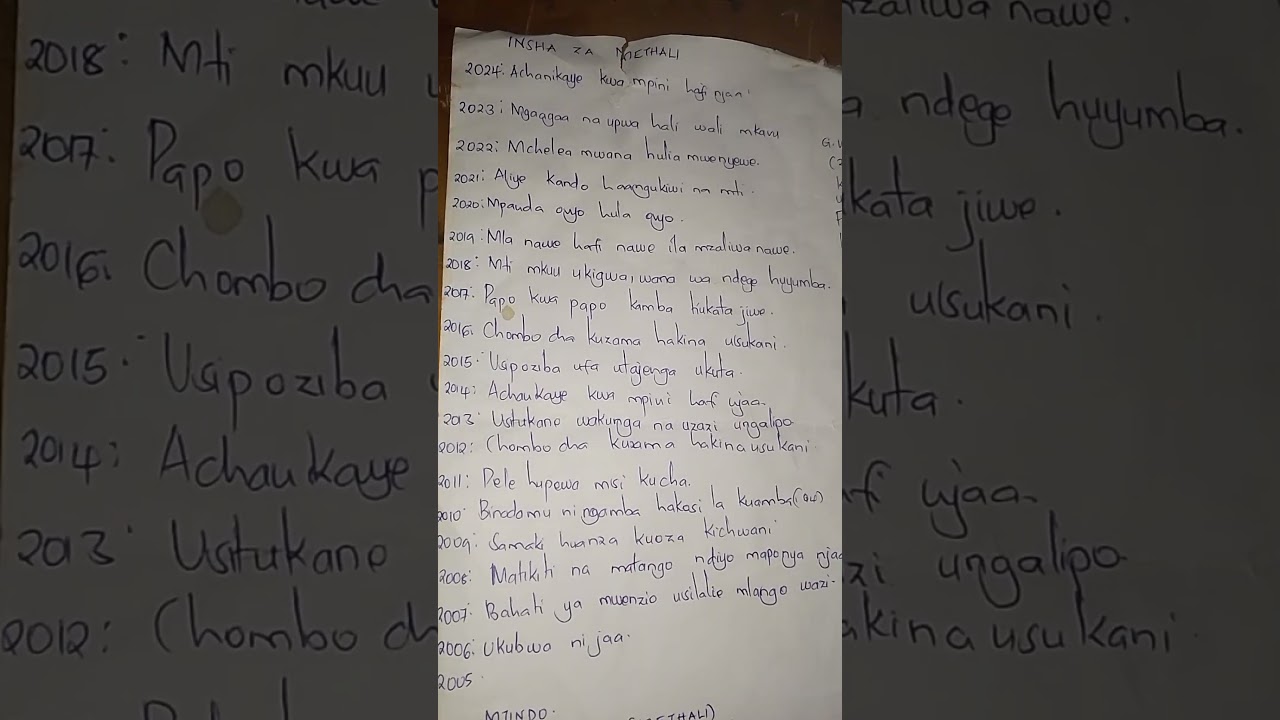 INSHA ZA METHALI
2024: Achanikaye kwa mpini hafi njaa
2023: Mgaagaa na upwa hali wali mkavu
2022: Mchelea mwana hulia mwenyewe.
2021: Aliye kando haangukiwi na mti.
2020: Mpanda ovyo hula ovyo.
2019: Mla nawe hafi nawe ila mzaliwa nawe.
2018: Mti mkuu ukigwa, wana wa ndege huyumba.
2017: Papo kwa papo kamba hukata jiwe.
2016: Chombo cha kuzama hakina usukani.
2015: Usipoziba ufa utajenga ukuta.
2014: Achaukaye kwa mpini haf ujaa.
2013: Ustukano wakunga na uzazi ungalipo
2012: Chombo cha kuzama hakina usukani.
2011: Pele hupewa msi kucha.
2010: Binadamu ni ngamba hakosi la kuamba
2009: Samaki huanza kuoza kichwani
2008: Matikiti na matango ndiyo maponya njaa
2007: Bahati ya mwenzio usilalie mlango wazi.
2006: Ukubwa ni jaa.
2005
MTINDO.